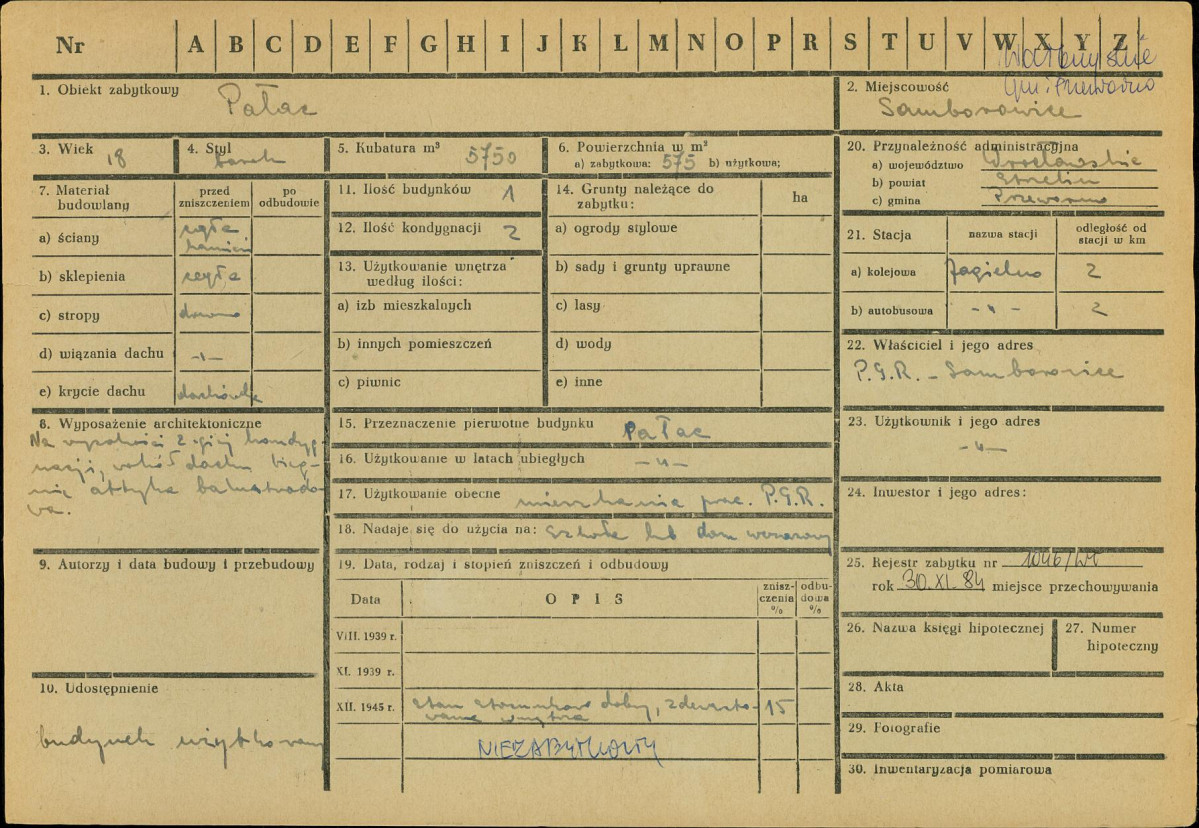 Nr A B C D E F G H I J K L M N O P R S T U V W X Y Z
gm. Przeworno
1. Obiekt zabytkowy Pałac
2. Miejscowość
Samborowice
3. Wiek 18
4. Styl barok
5. Kubatura m³ 5750
6. Powierzchnia w m²
a) zabytkowa: 575 b) użytkowa;
20. Przynależność administracyjna
a) województwo Wrocławskie
b) powiat Strzelin
c) gmina Przeworno
7. Materiał budowlany
przed zniszczeniem
po odbudowie
a) ściany cegła kamień
b) sklepienia cegła
c) stropy
d) wiązania dachu -"-
e) krycie dachu dachówka
11. Ilość budynków 1
12. Ilość kondygnacji 2
13. Użytkowanie wnętrza
według ilości:
a) izb mieszkalnych
b) innych pomieszczeń
c) piwnic
14. Grunty należące do
zabytku:
ha
a) ogrody stylowe
b) sady i grunty uprawne
c) lasy
d) wody
e) inne
21. Stacja
nazwa stacji
odległość od
stacji w km
a) kolejowa Jagielno 2
b) autobusowa -"- 2
22. Właściciel i jego adres
P.G.R. – Samborowice
8. Wyposażenie architektoniczne
Na wysokości 2-giej kondyg-
nacji, wokół dachu bieg-
nie attyka balustrado-
wa.
15. Przeznaczenie pierwotne budynku Pałac
16. Użytkowanie w latach ubiegłych -"-
17. Użytkowanie obecne mieszkania prac. P.G.R.
18. Nadaje się do użycia na: szkołę lub dom wczasowy
23. Użytkownik i jego adres
-"-
24. Inwestor i jego adres:
9. Autorzy i data budowy i przebudowy
19. Data, rodzaj i stopień zniszczeń i odbudowy
Data
OPIS
znisz-
czenia
%
odbu-
dowa
%
VIII. 1939 r.
XI. 1939 r.
XII. 1945 r. stan stosunkowo dobry, zdewasto-
wane wnętrza 15
NIEZABYTKOWY
25. Rejestr zabytku nr 1046/Wł
rok 30.XI.84 miejsce przechowywania
26. Nazwa księgi hipotecznej
27. Numer
hipoteczny
10. Udostępnienie
budynek użytkowany
28. Akta
29. Fotografie
30. Inwentaryzacja pomiarowa